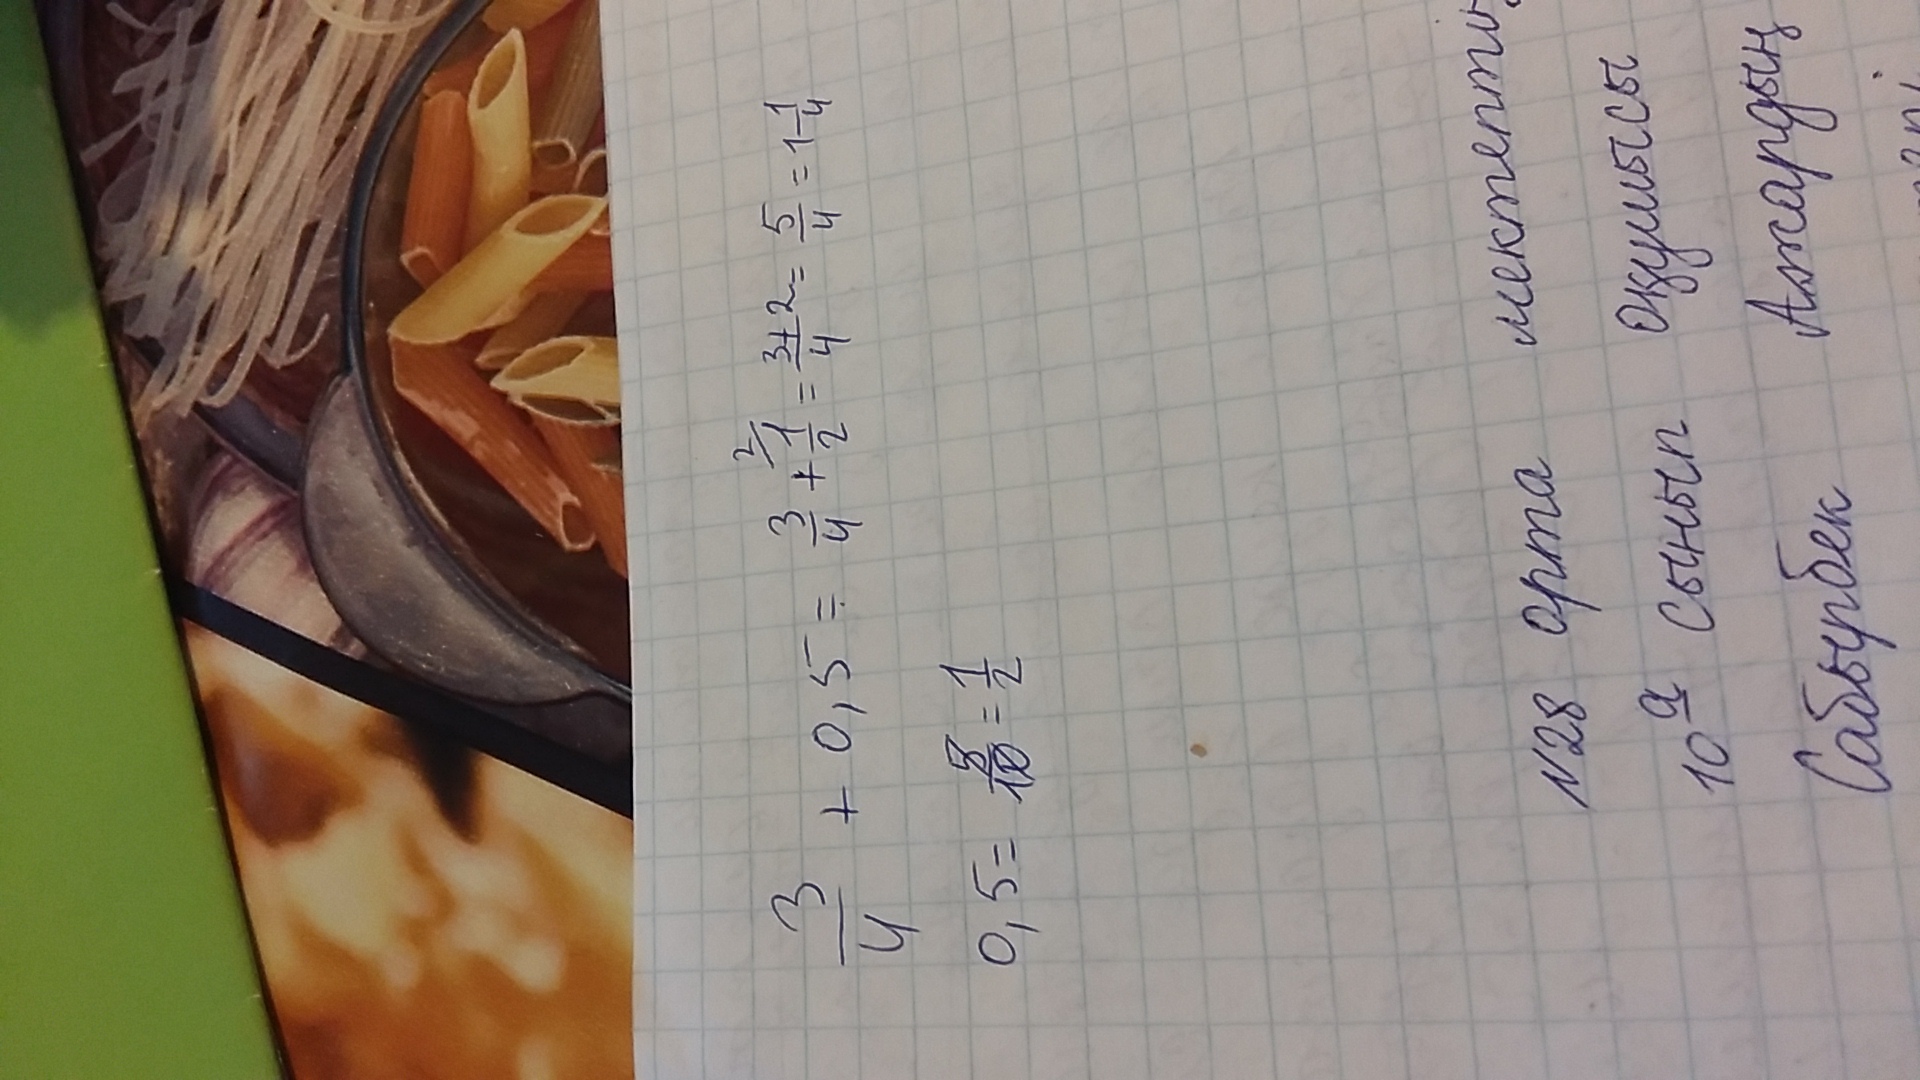 3/4 + 0,5 = 3/4 + 1/2 = 3+2/4 = 5/4 = 1 1/4
0,5 = 5/10 = 1/2
N28 орта мектептің
10 а сынып оқушысы
Сабырбек Ажардың